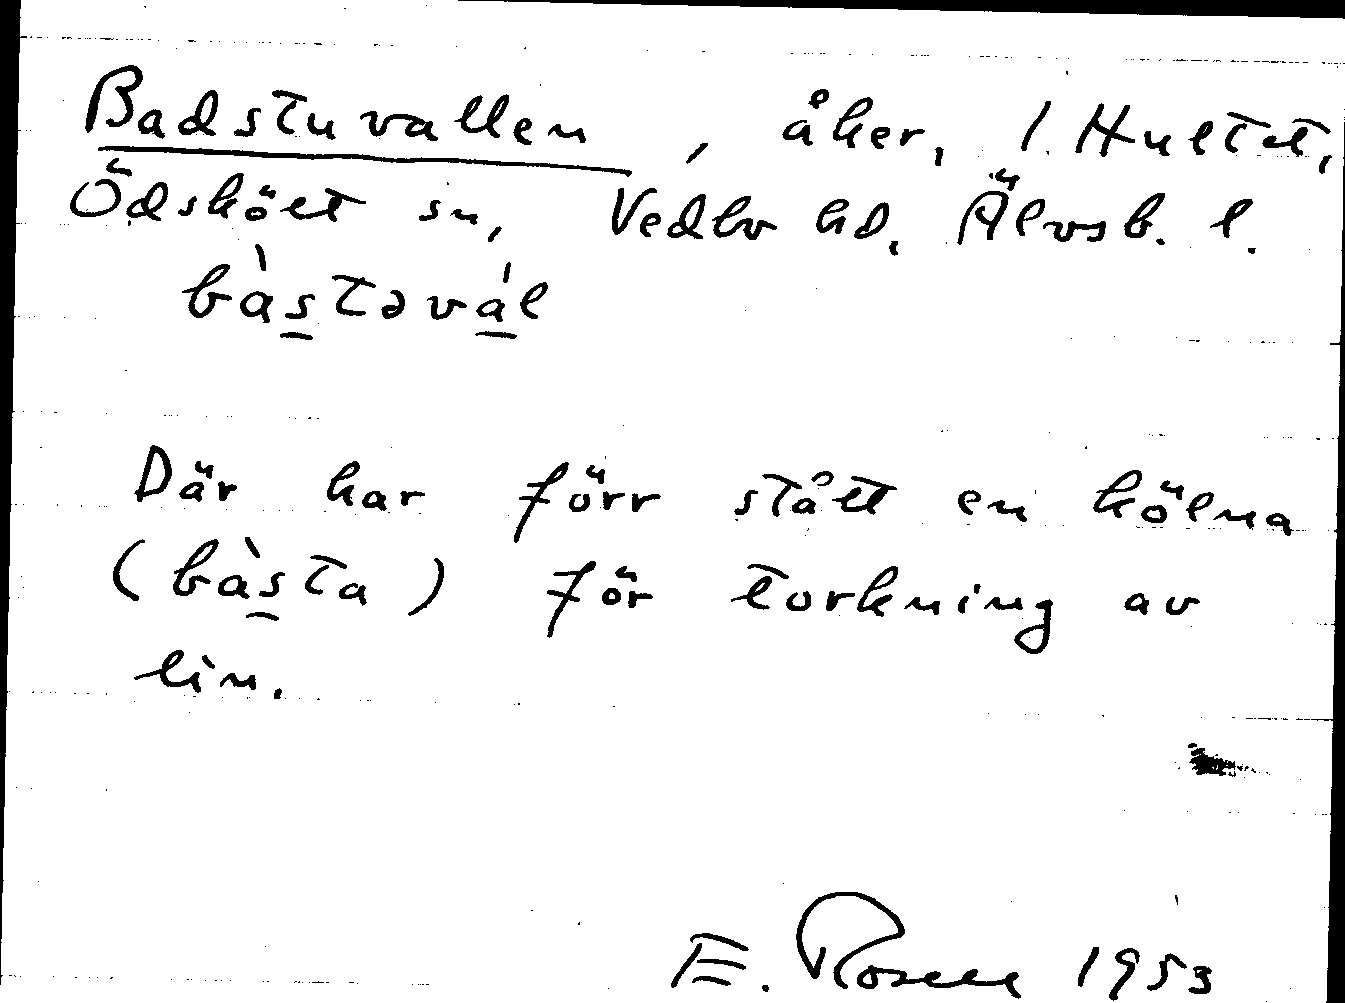 Badstuvallen, åker, 1 Hultet,
Ödsköłt sn, Vedbo hd, Älvsb. l.
bàstəvál
Där har förr stått en kölna
(bàsta) för torkning av
lin.
E. Rosell 1953